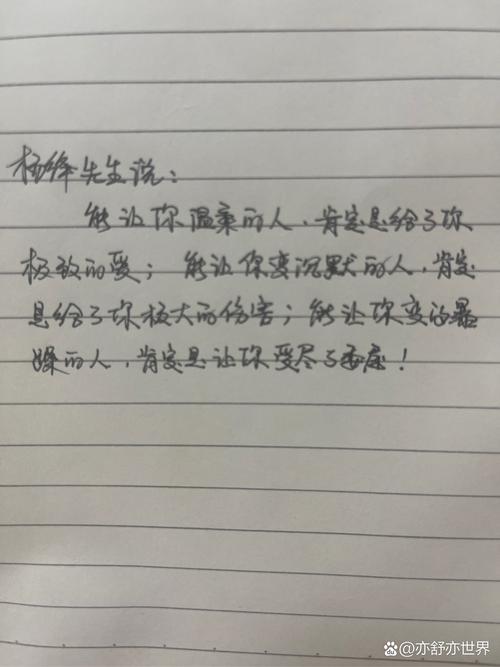 杨绛先生说：
能让你温柔的人，肯定是给了你
极致的爱；能让你变沉默的人，肯定
是给了你极大的伤害；能让你变的暴
燥的人，肯定是让你受尽了委屈！
亦舒亦世界